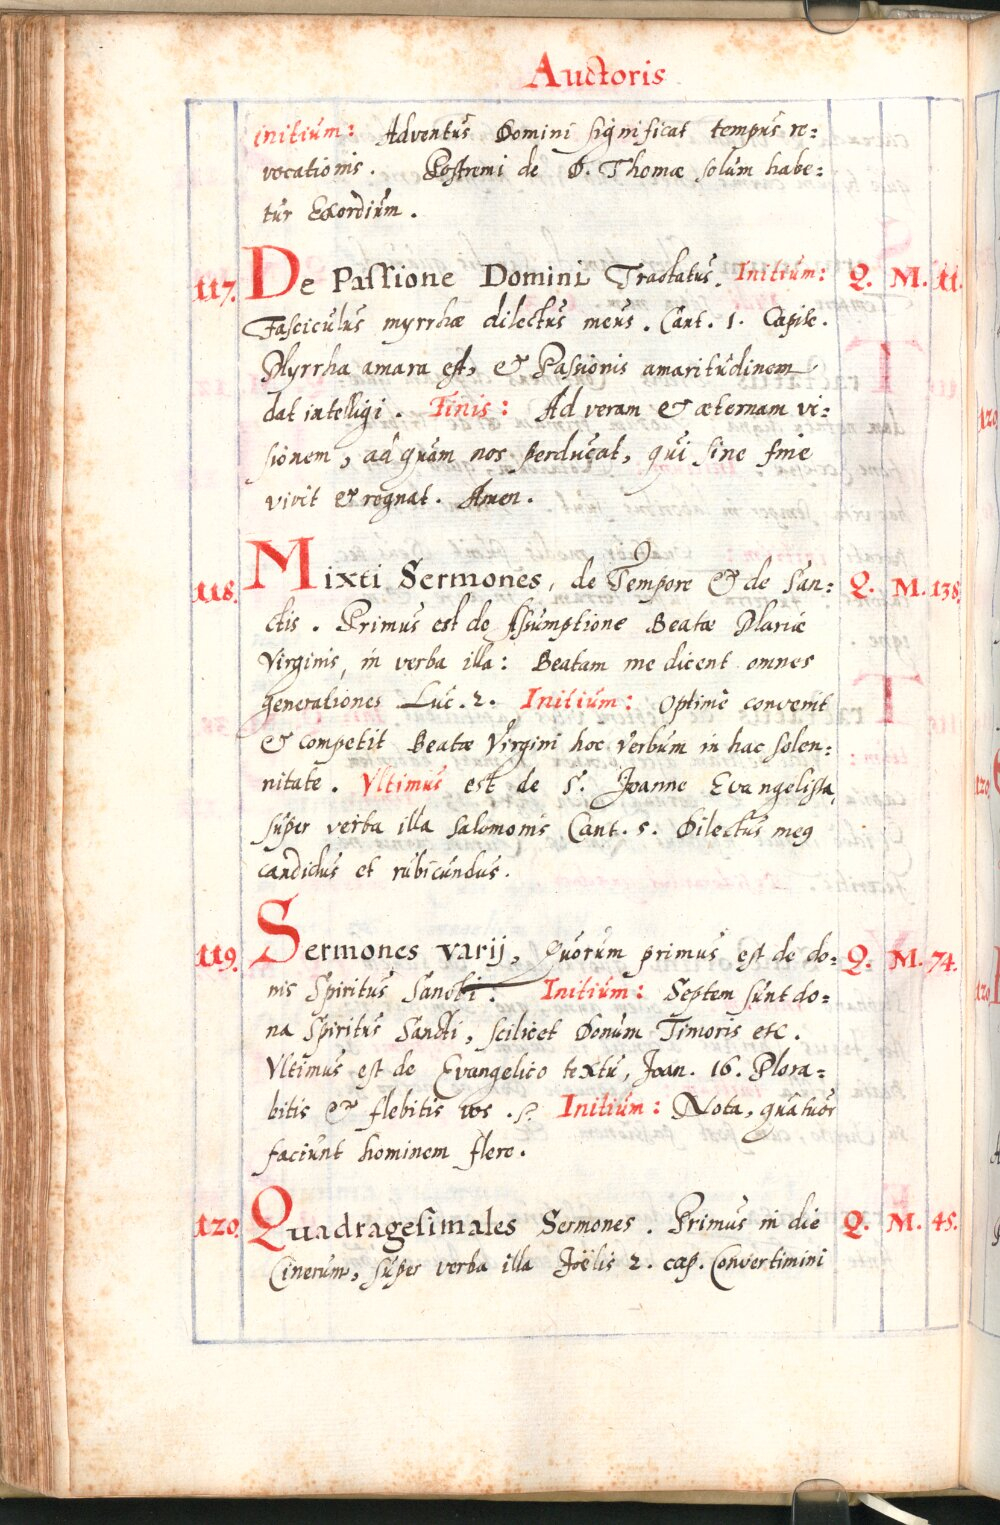 Auctoris
initium: Adventus Domini significat tempus re:
vocationis. Postremi de D. Thomæ solum habe:
tur Exordium.
117. De Passione Domini Tractatus. Initium: Q. M. 11.
Fasciculus myrrhæ dilectus meus. Cant. 1. Capite.
Myrrha amara est, & Passionis amaritudinem
dat intelligi. Finis: Ad veram & æternam vi:
sionem, ad quam nos perducat, qui sine fine
vivit & regnat. Amen.
118. Mixti Sermones, de Tempore & de San: Q. M. 138.
ctis. Primus est de Assumptione Beatæ Mariæ
Virginis, in verba illa: Beatam me dicent omnes
generationes Luc. 2. Initium: Optimè convenit
& competit Beatæ Virgini hoc verbum in hac solen:
nitate. Vltimus est de S. Joanne Evangelista,
super verba illa Salomonis Cant. 5. Dilectus meꝰ
candidus et rubicundus.
119. Sermones varij, Quorum primus est de do: Q. M. 74.
nis Spiritus Sancti: Initium: Septem sunt do:
na Spiritus Sancti, scilicet Donum Timoris etc.
Vltimus est de Evangelico textu, Joan. 16. Plora:
bitis & flebitis vos. Initium: Nota, quatuor
faciunt hominem flere.
120. Quadragesimales Sermones. Primus in die Q. M. 45.
Cinerum, super verba illa Joëlis 2. cap. Convertimini